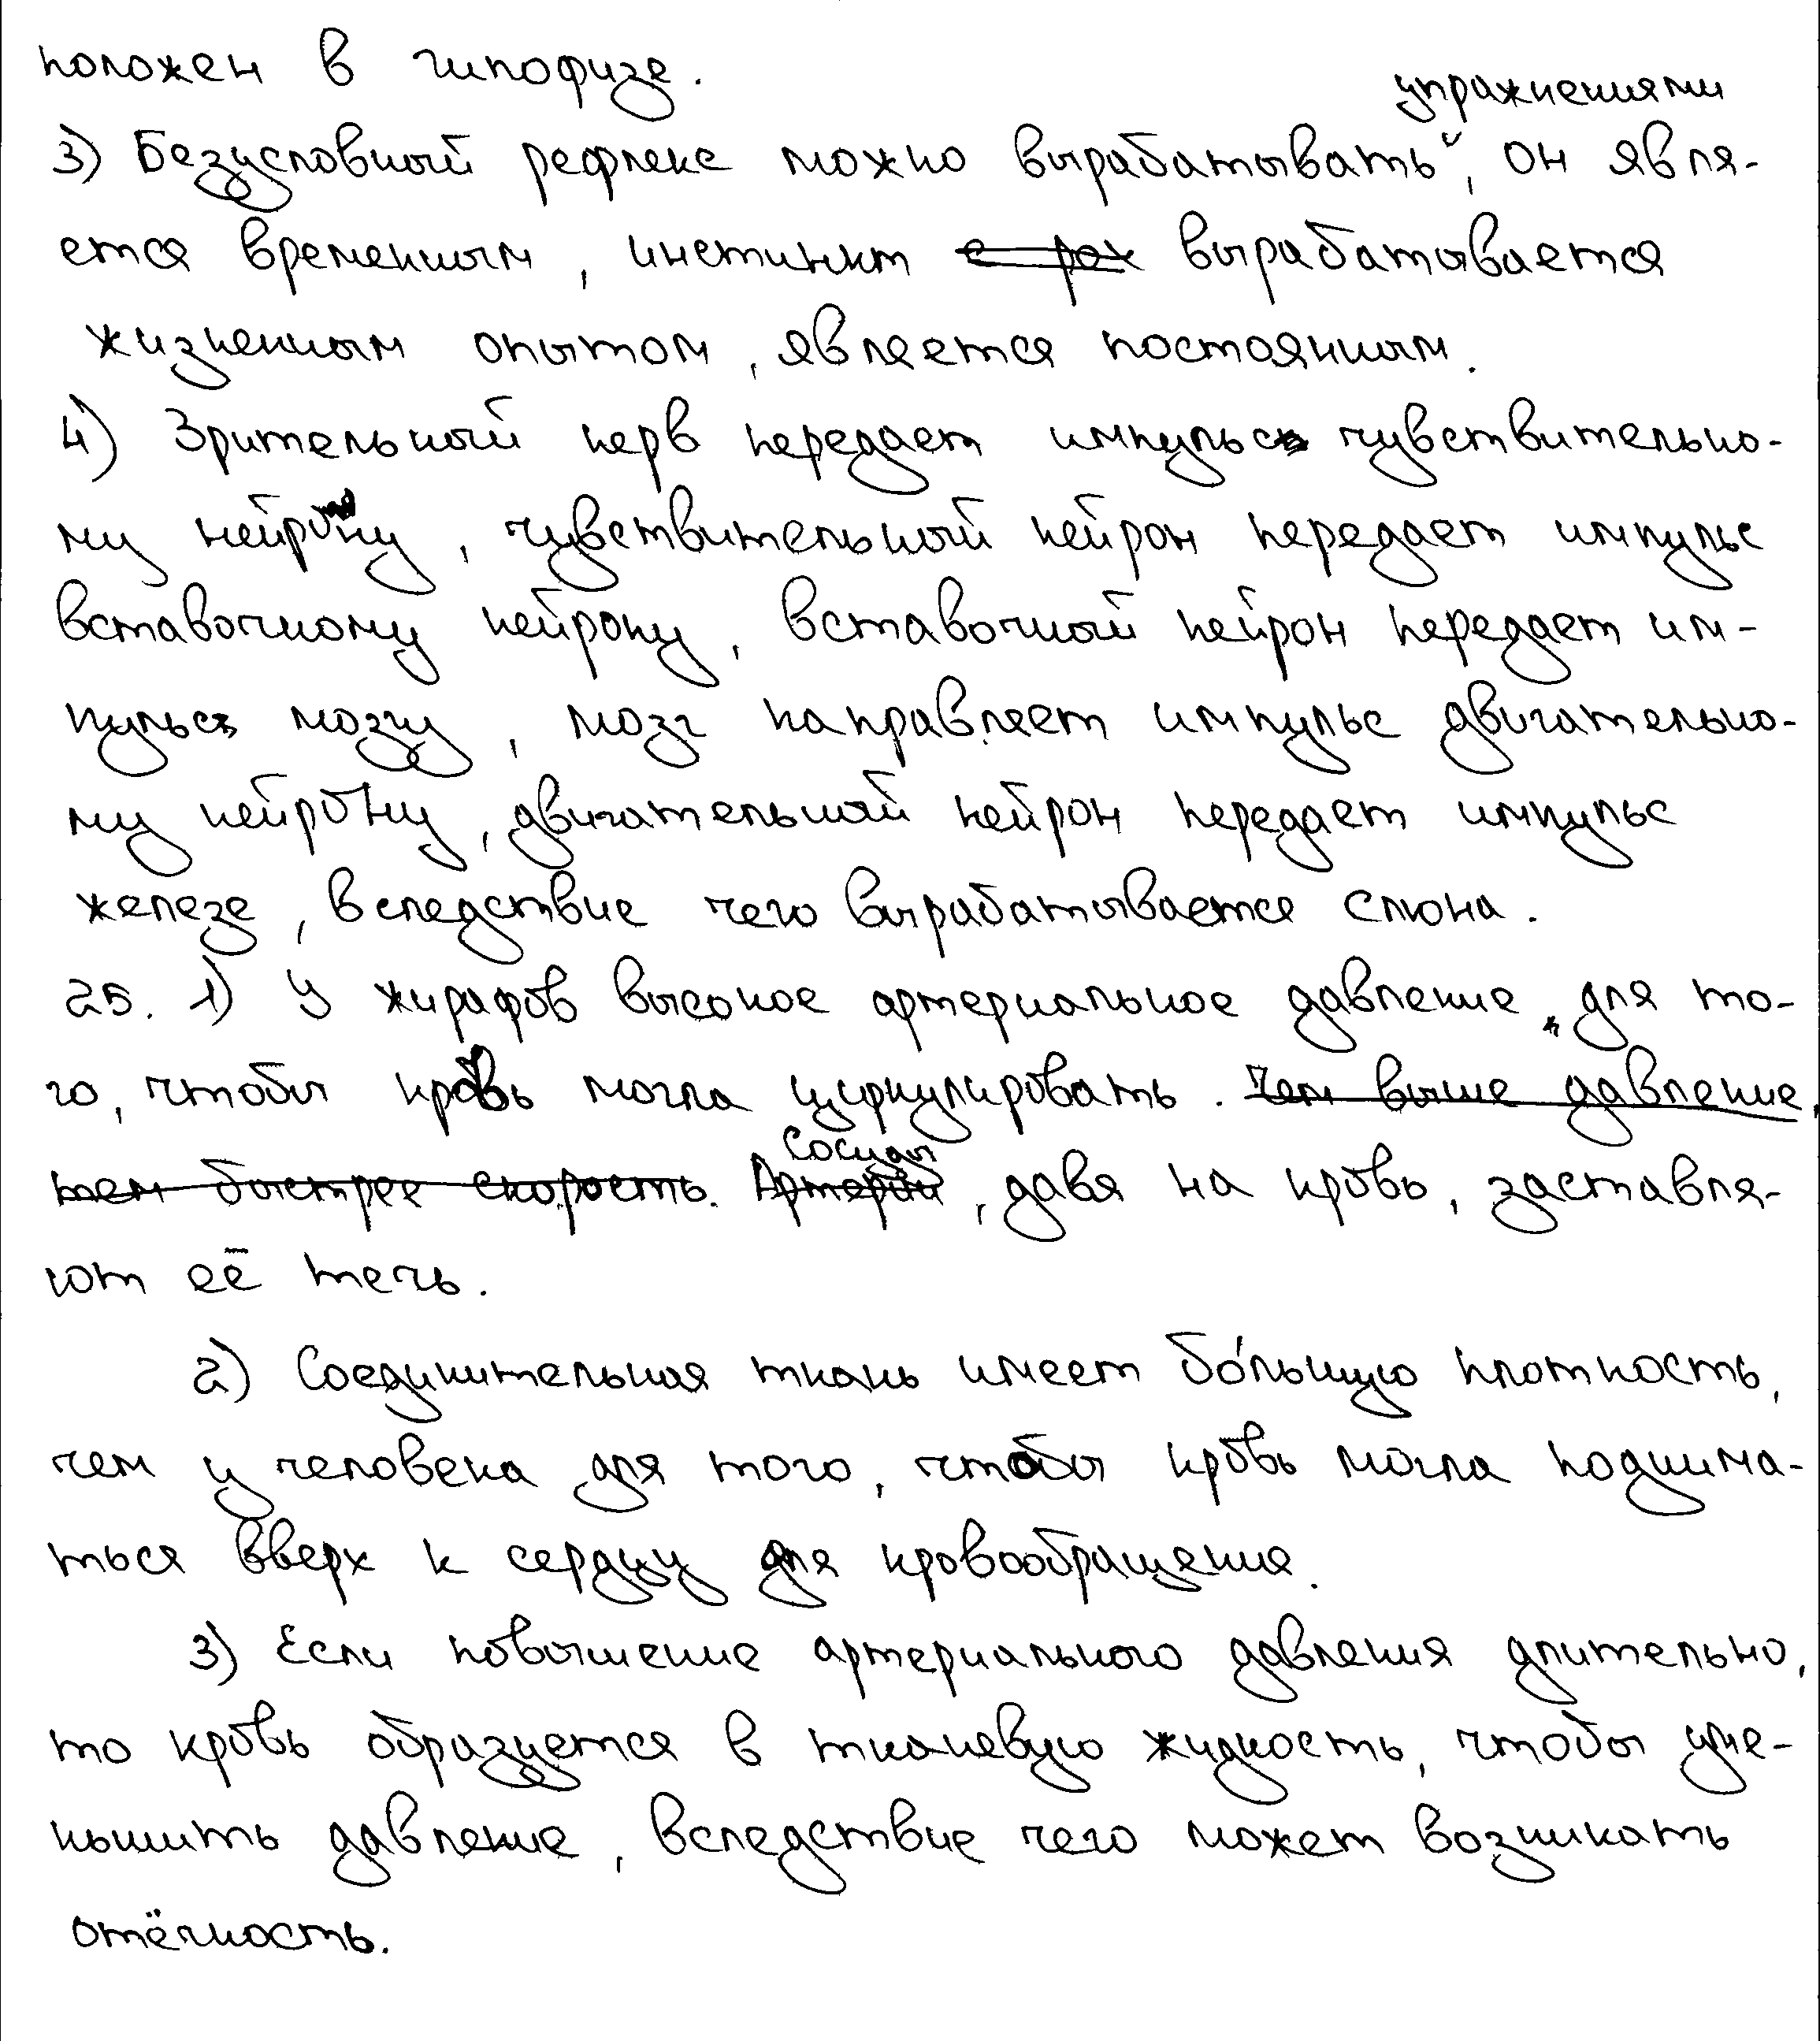 положен в гипофизе.
упражнениями
3) Безусловный рефлекс можно вырабатывать, он явля-
ется временным, инстинкт с рож вырабатывается
жизненным опытом, является постоянным.
4) Зрительный нерв передает импульс чувствительно-
му нейрону, чувствительный нейрон передает импульс
вставочному нейрону, вставочный нейрон передает им-
пульс мозгу, мозг направляет импульс двигательно-
му нейрону, двигательный нейрон передает импульс
железе, вследствие чего вырабатывается слюна.
25. 1) У жирафов высокое артериальное давление для то-
го, чтобы кровь могла циркулировать. Чем выше давление,
сосуды
тем быстрее скорость. Артерии, давя на кровь, заставля-
ют её течь.
2) Соединительная ткань имеет бо́льшую плотность,
чем у человека для того, чтобы кровь могла поднима-
ться вверх к сердцу для кровообращения.
3) Если повышение артериального давления длительно,
то кровь образуется в тканевую жидкость, чтобы уме-
ньшить давление, вследствие чего может возникать
отёчность.